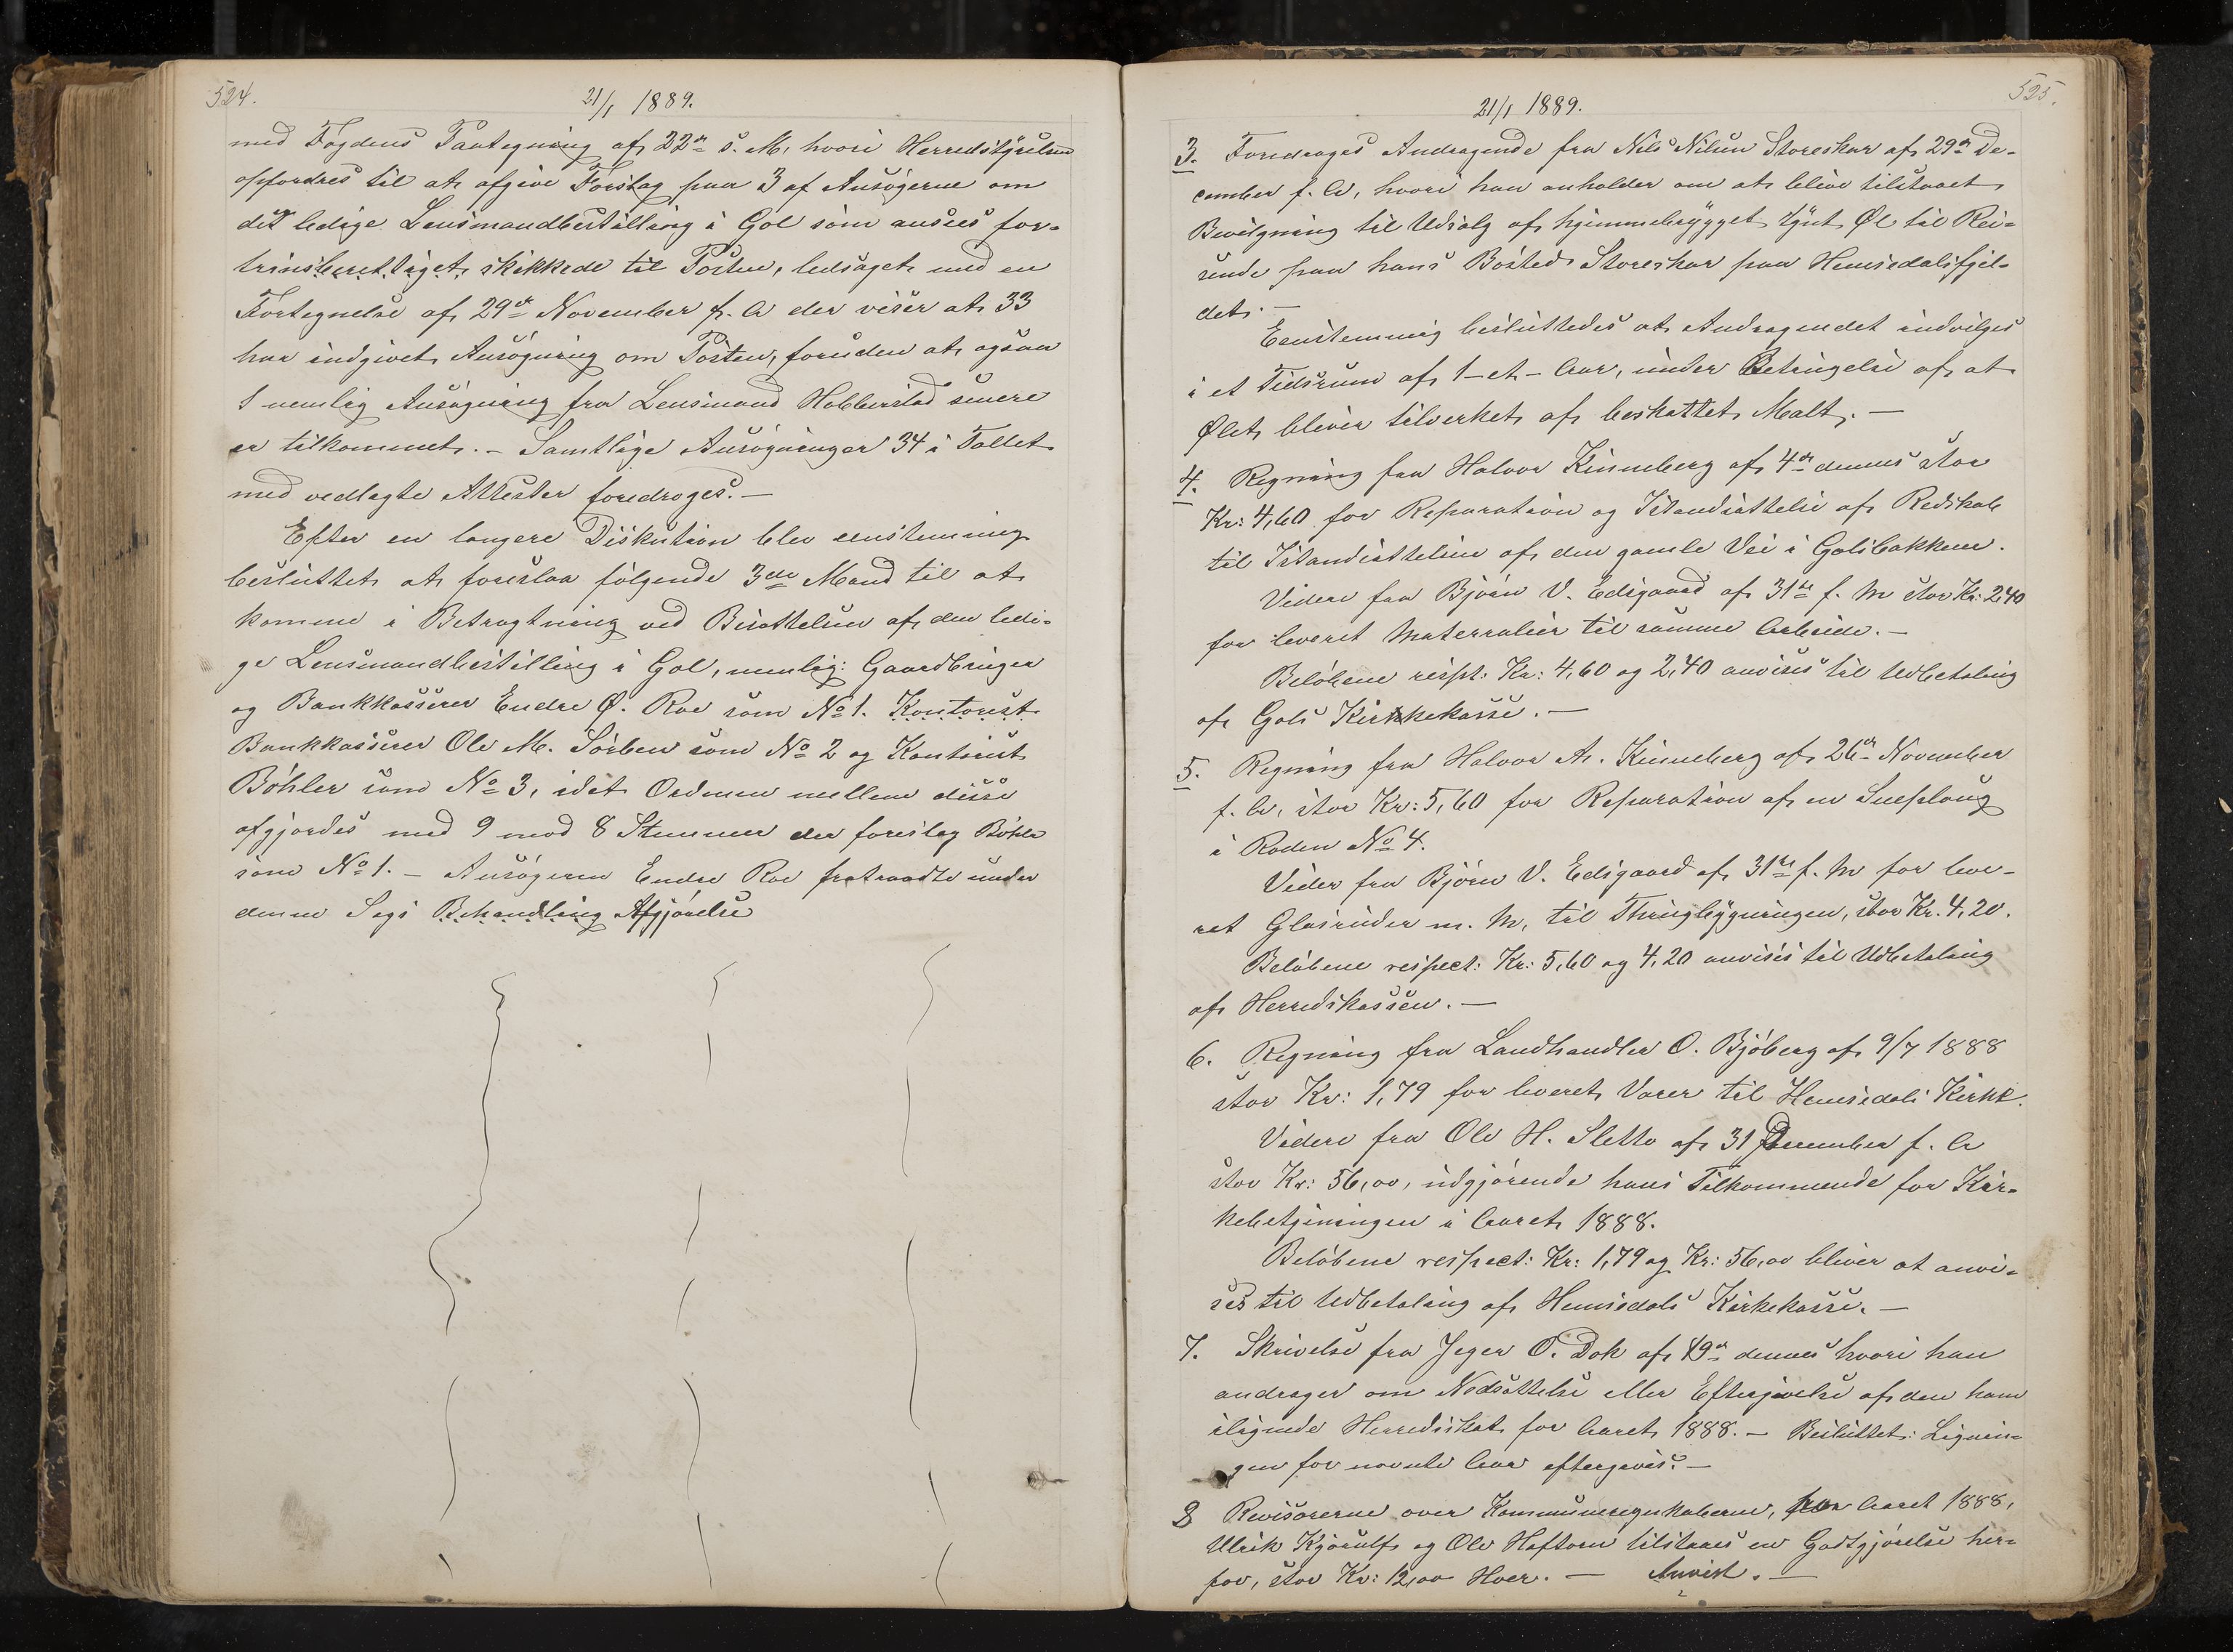 524.
21/1 1889.
med Fogdens Paategning af 22de s. M. hvori Herredstyrelsen
opfordres til at afgive Forslag paa 3 af Ansøgerne om
det ledige Lensmandbestilling i Gol som ansees for-
trinsberettiget skikkede til Posten, ledsaget med en
Fortegnelse af 29de November f. A der viser at 33
har indgivet Ansøgning om Posten, foruden at ogsaa
1 nemlig Ansøgning fra Lensmand Hobberstad senere
er tilkommet. - Samtlige Ansøgninger 34 i Tallet
med vedlagte Attester foredroges. —
Efter en længere Diskution blev eenstemmig
besluttet at foreslaa følgende 3de Mænd til at
komme i Betragtning ved Besættelsen af den ledi-
ge Lensmandbestilling i Gol, nemlig: Gaardbruger
og Bankkasserer Endre Ø. Roe som No 1. Kontorist
Bankkasserer Ole M. Sørbøen som No 2 og Kontorist
Bøhler som No 3, idet Ordenen mellem disse
afgjordes med 9 mod 8 Stemmer der foreslog Bøhler
som No 1. — Ansøgeren Endre Roe fratraadte under
denne Sags Behandling Afgjørelse
525.
21/1 1889.
3. Foredroges Andragende fra Nils Nilsen Storeskar af 29de De-
cember f. A, hvori han anholder om at blive tilstaaet
Bevilgning til Udsalg af hjemmebrygget tyndt Øl til Rei-
sende paa hans Bosted Storeskar paa Hemsedalsfjel-
det. —
Eenstemmig besluttedes at Andragendet indvilges
i et Tidsrum af 1 - et - Aar, under Betingelse af at
Ølet bliver tilverket af beskattet Malt. —
4. Regning fra Halvor Kinneberg af 4de dennes stor
Kr: 4,60 for Reparation og Istandsættelse af Redskab
til Istandsættelsen af den gamle Vei i Golsbakken.
Videre fra Bjørn V. Edsgaard af 31te f. M stor Kr: 2,40
for leveret Materialier til samme Arbeide. —
Beløbene respt: Kr: 4,60 og 2,40 anvises til Udbetaling
af Gols Kirkekasse. —
5. Regning fra Halvor A. Kinneberg af 26de November
f. A, stor Kr: 5,60 for Reparation af en Sneplong
i Roden No 4.
Vider fra Bjørn V. Edsgaard af 31te f. M for leve-
ret Glasruder m. M, til Thingbygningen, stor Kr. 4,20.
Beløbene respect: Kr: 5,60 og 4,20 anvises til Udbetaling
af Herredskassen. —
6. Regning fra Landhandler O. Bjøberg af 9/7 1888
stor Kr: 1,79 for leveret Varer til Hemsedals Kirke.
Videre fra Ole H. Slette af 31 December f. A
stor Kr: 56,00, udgjørende hans Tilkommende for Kir-
kebetjeningen i Aaret 1888.
Beløbene respect: Kr: 1,79 og Kr: 56,00 bliver at anvi-
ses til Udbetaling af Hemsedals Kirkekasse. —
7. Skrivelse fra Jeger O. Dok af 19de dennes hvori han
andrager om Nedsættelse eller Eftergivelse af den ham
ilignede Herredsskat for Aaret 1888. — Besluttet: Lignin-
gen for nævnte Aar eftergives. —
8 Revisorerne over Kommuneregnskaberne, for Aaret 1888,
Ulrik Kjørulf og Ole Haftorn tilstaaes en Godtgjørelse her-
for, stor Kr: 12,00 Hver. — Anvist. —